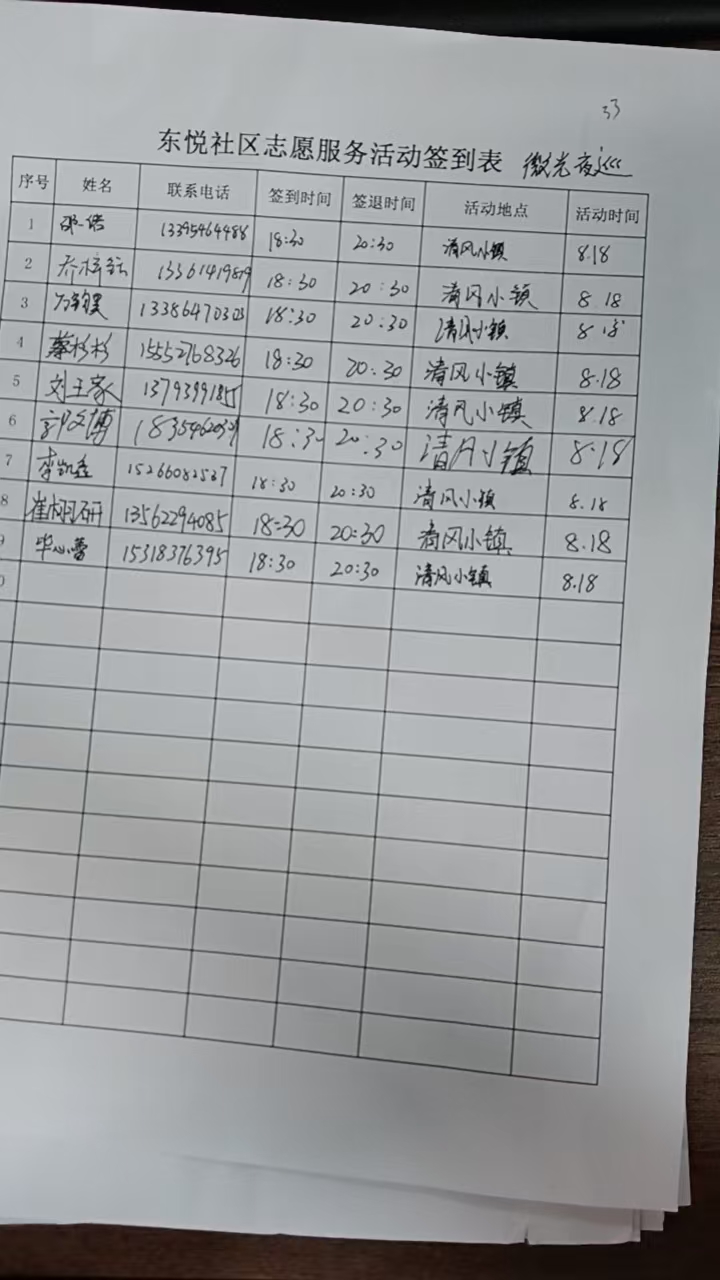 33
东悦社区志愿服务活动签到表 微光夜巡
序号 姓名 联系电话 签到时间 签退时间 活动地点 活动时间
1 13395464488 18:30 20:30 清风小镇 8.18
2 18:30 20:30 清风小镇 8.18
3 18:30 20:30 清风小镇 8.18
4 蔡杉杉 15552768326 18:30 20:30 清风小镇 8.18
5 刘玉家 13793991855 18:30 20:30 清风小镇 8.18
6 郭文博 18:30 20:30 清风小镇 8.18
7 李凯鑫 15266082537 18:30 20:30 清风小镇 8.18
8 崔栩研 13562294085 18:30 20:30 清风小镇 8.18
9 毕心蕾 15318376395 18:30 20:30 清风小镇 8.18
0